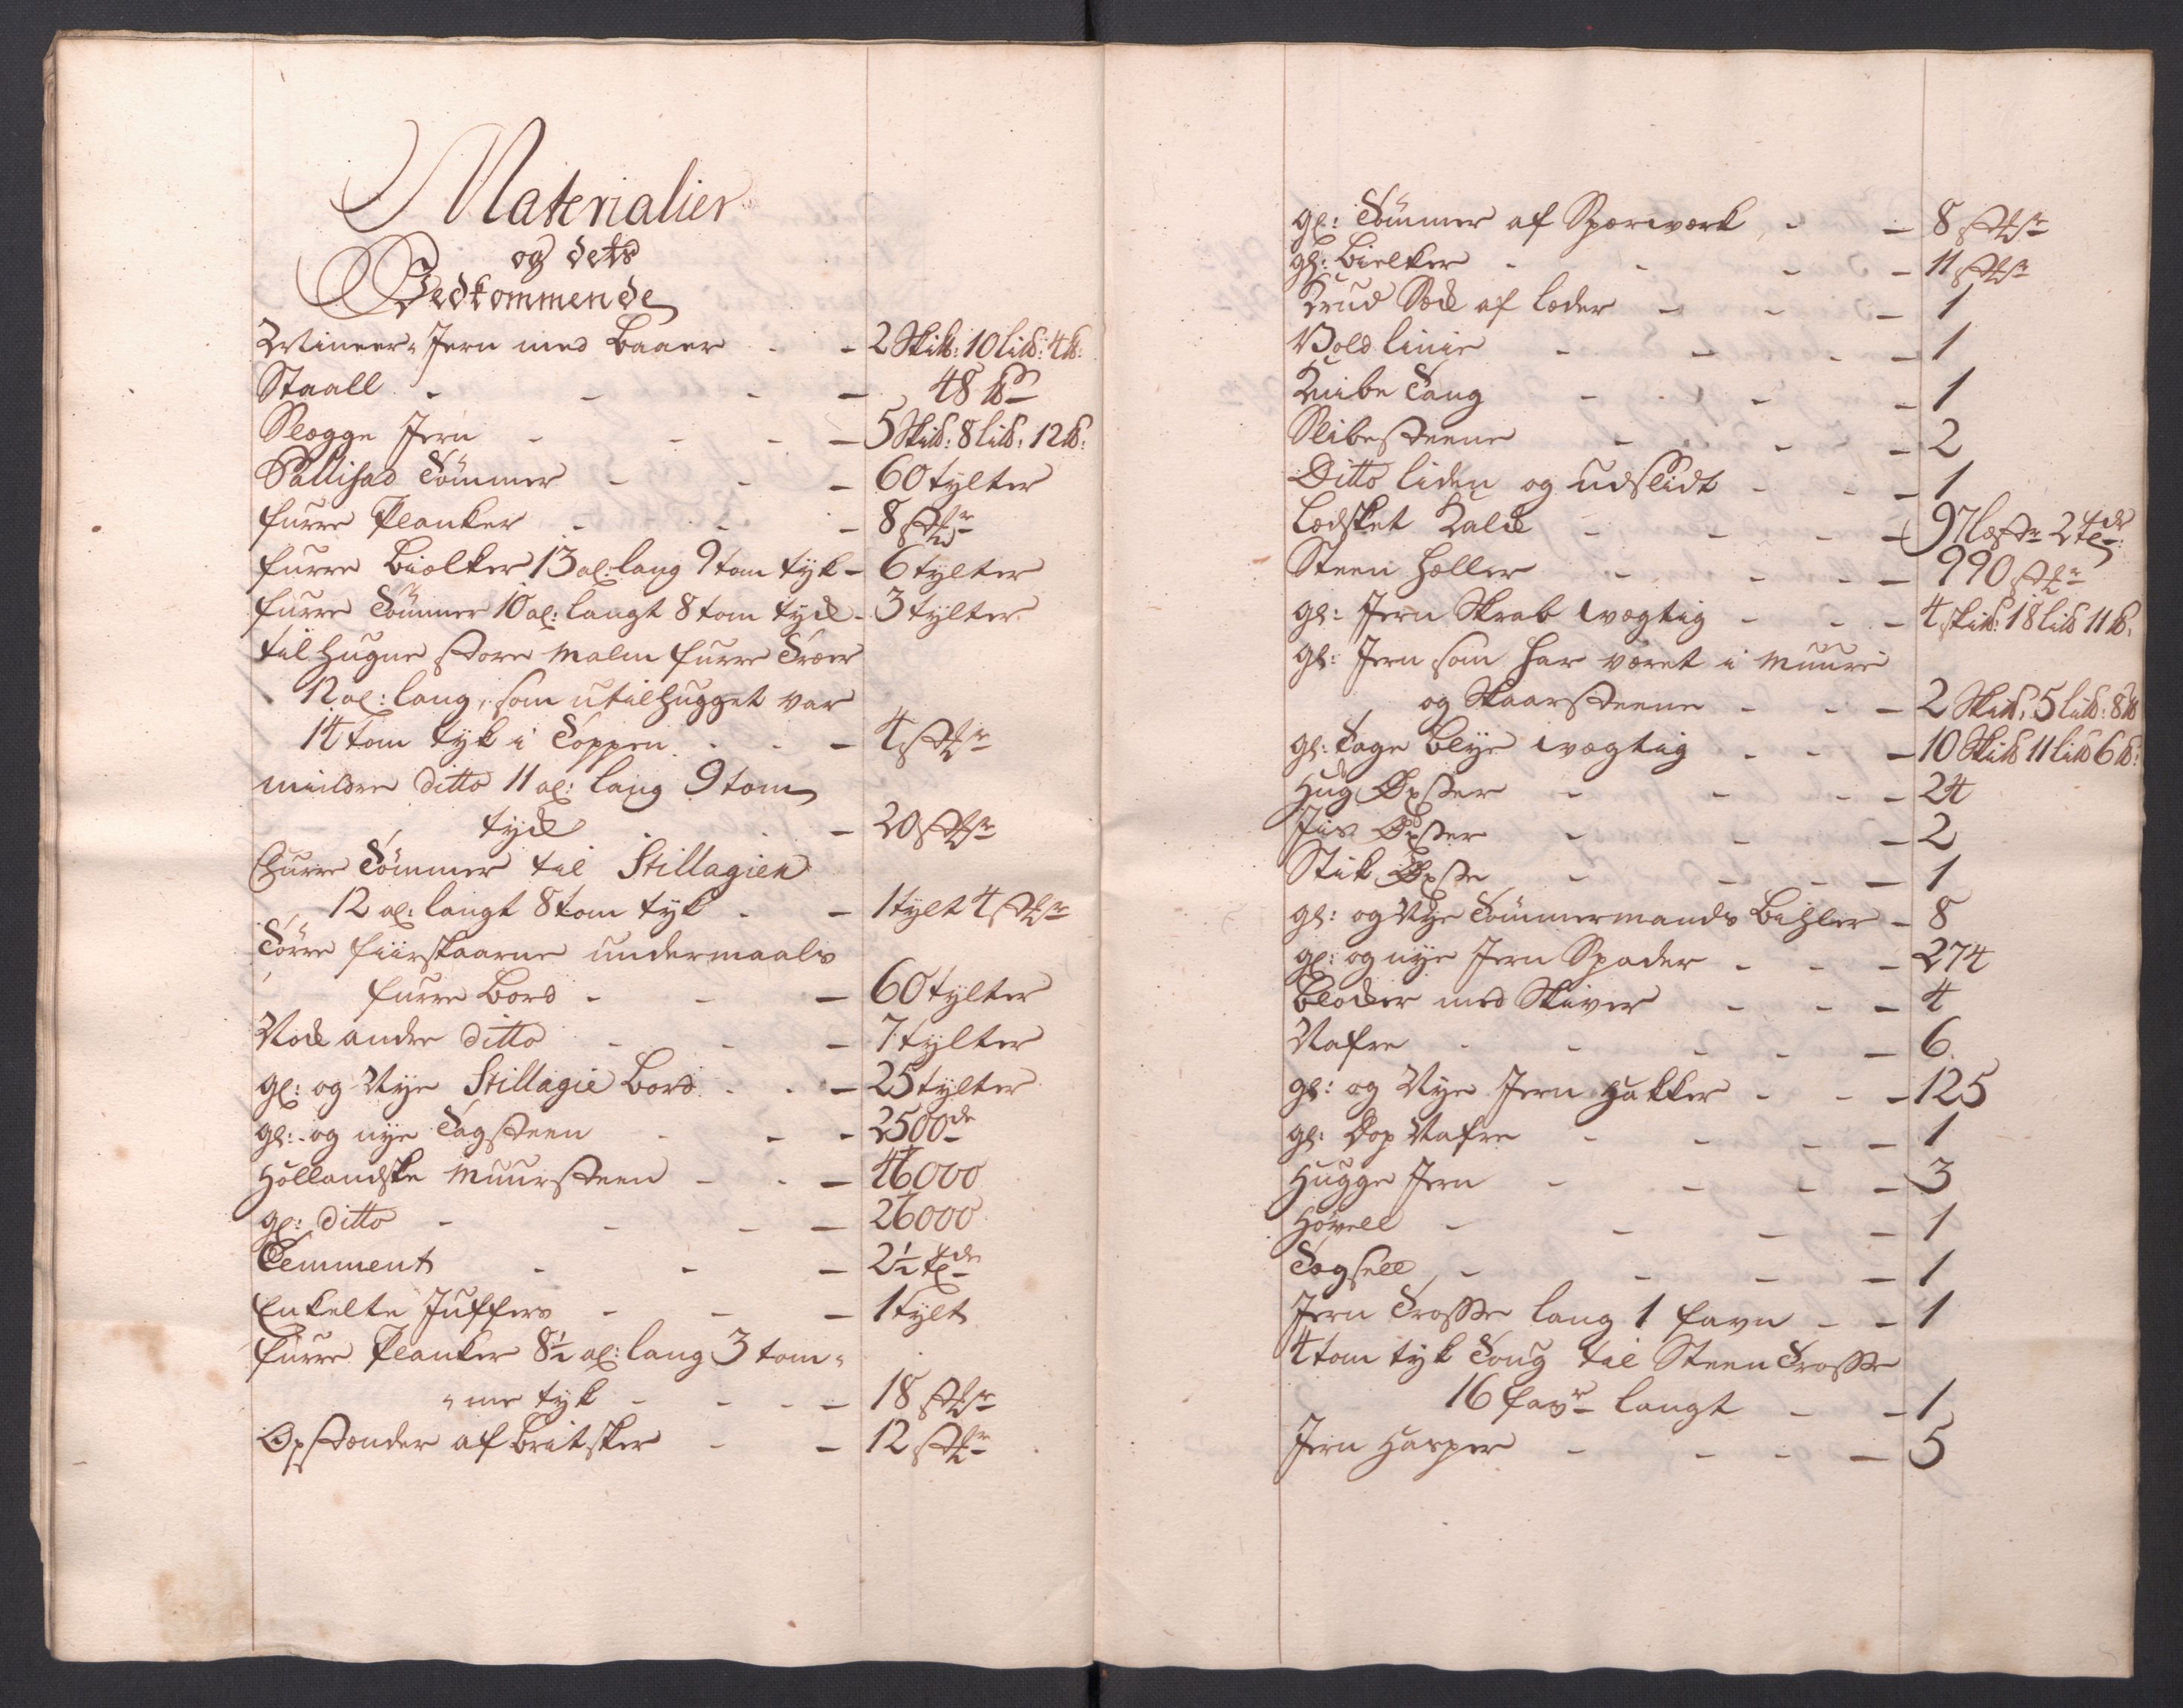 Materialier
og dets
Vedkommende
Mineer Jern med Baaer - - 2 Skilb: 10 lilb: 4 lb:
Staall - - - - 48 lb
Slegge Jern - - - - 5 Skilb: 8 lilb: 12 lb:
Pallisad Tömmer - - - 60 tylter
furre Planker - - - 8 stkr
furre Bielker 13 al: lang 9 tom tyk - 6 tylter
furre Tömmer 10 al: langt 8 tom tyck - 3 tylter
til Hugne store Malm furre Træer
12 al: lang, som utilhugget var
14 tom tyk i Toppen - - - 4 stkr
mindre ditto 11 al: lang 9 tom
tyck - 20 stkr
Furre Tömmer til Stillagien
12 al: langt 8 tom tyk - - 1 tylt 4 stkr
Törre fiirskaarne undermaals
furre Bord - - - 60 tylter
Nock andre ditto - - - 7 tylter
gl: og Nye Stillagie Bord - - 25 tylter
gl: og nye Tagsteen - - - 2500de
Hollandske Muursteen - - - 46000
gl: ditto - - - - 26000
Cemment - - - 2½ tde
Enkelte Juffers - - - 1 tylt
furre Planker 8½ al: lang 3 tom„
„me tyk - - - - 18 stkr
Opstænder af Britsker - - 12 stkr
gl: Tömmer af Sperværk - - 8 stkr
gl: Bielker - - - - 11 stkr
Krud Sæck af Læder - - - 1
Vold linie - - - - 1
Knibe Tang - - - - 1
Slibesteene - - - - 2
Ditto liden og udslidt - - - 1
Ledsket Kalck - - - - 97 lestr 2 tdr
Steen Heller - - - - 990 stkr
gl: Jern Skrab wegtig - - - 4 skilb: 18 lilb 11 lb:
gl: Jern som har været i Muure
og Skaarsteene - - - 2 Skilb: 5 lilb: 8 lb
gl: Tage Blye wegtig - - - 10 Skilb 11 lilb 6 lb:
Hug Öxser - - - - 24
Jis Öxser - - - 2
Stik Öxse - - - - 1
gl: og Nye Tömmermands Bihler - 8
gl: og nye Jern Spader - - - 274
Blocker med Skiver - - - 4
Nafre - - - - - 6
gl: og Nye Jern Hakker - - - 125
gl: Dop Nafre - - - - 1
Hugge Jern - - - - 3
Hövell - - - - 1
Togsell - - - - 1
Jern Trosse lang 1 favn - - 1
4 tom tyk Toug til Steen Trosse
16 favr langt - - 1
Jern Hasper - - - - 5